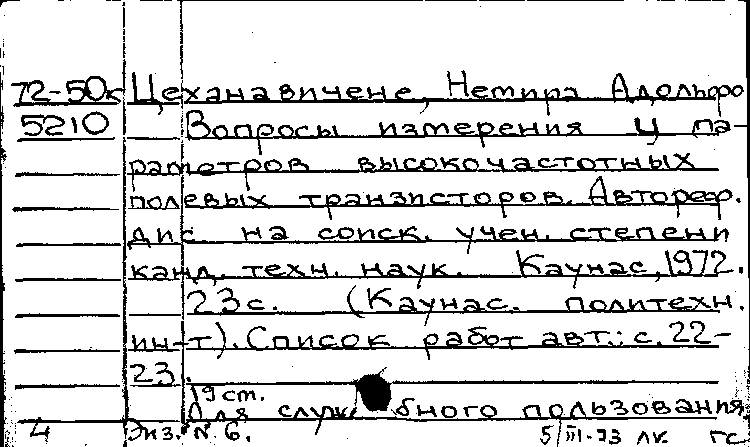 72-50к Цеханавичене, Немира Адольфо
5210 Вопросы измерения Y па-
раметров высокочастотных
полевых транзисторов. Автореф.
дис. на соиск. учен. степени
канд. техн. наук. Каунас, 1972.
23с. (Каунас. политехн.
ин-т). Список работ авт.: с. 22-
23.
19 ст.
Для служебного пользования.
4 Экз. № 6. 5/III-73 лк. гс